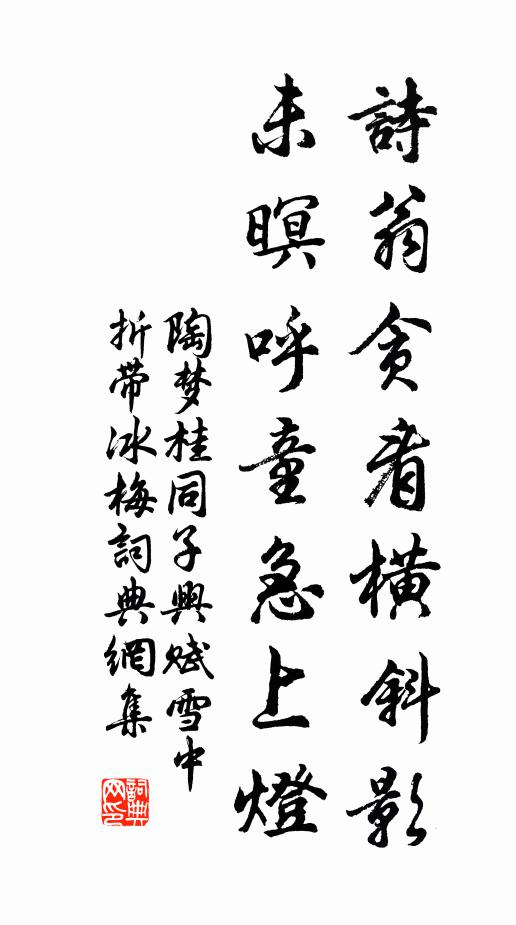 詩翁貪看橫斜影
未暝呼童急上燈
陶梦桂同子興赋雪中
折带冰梅詞典網集
詞典网印